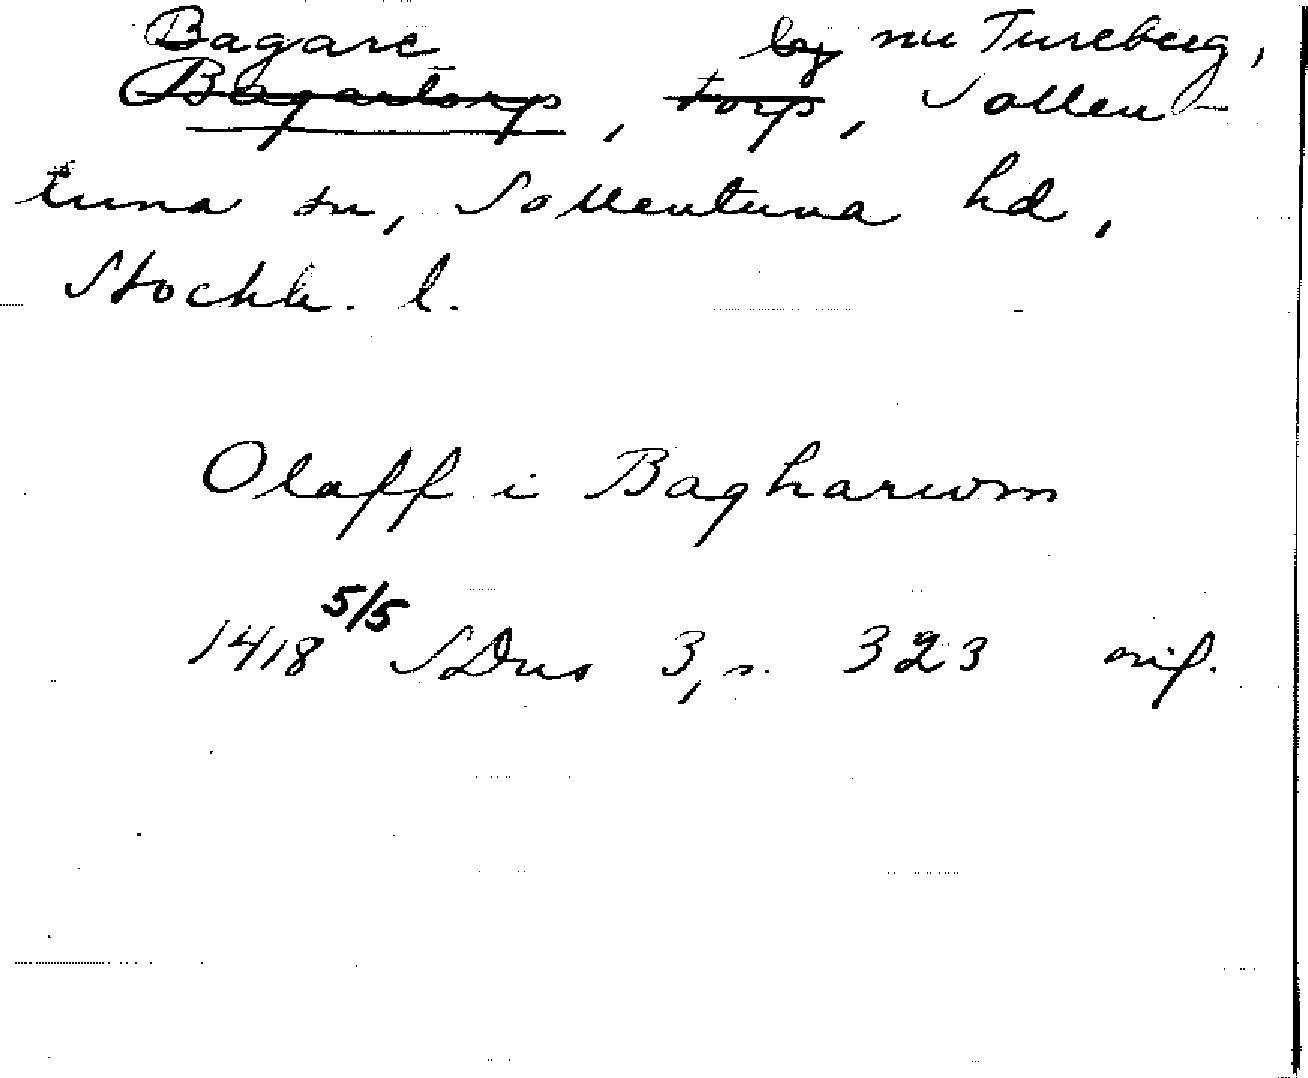 Bagare by nu Tureberg,
Bagartorp, torp, Sollen-
tuna sn, Sollentuna hd,
Stockh. l.
Olaff i Bagharwm
1418 5/5 SDns 3, s. 323 mif.